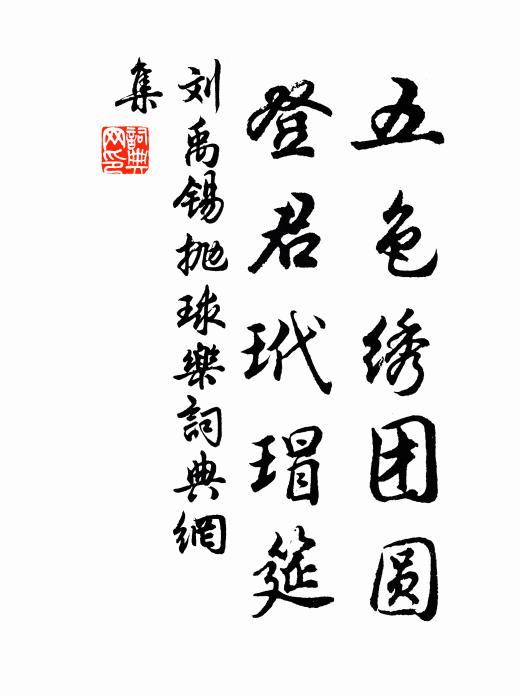 五色绣团圆
登君玳瑁筵
刘禹锡抛球樂詞典網
集
詞典网印